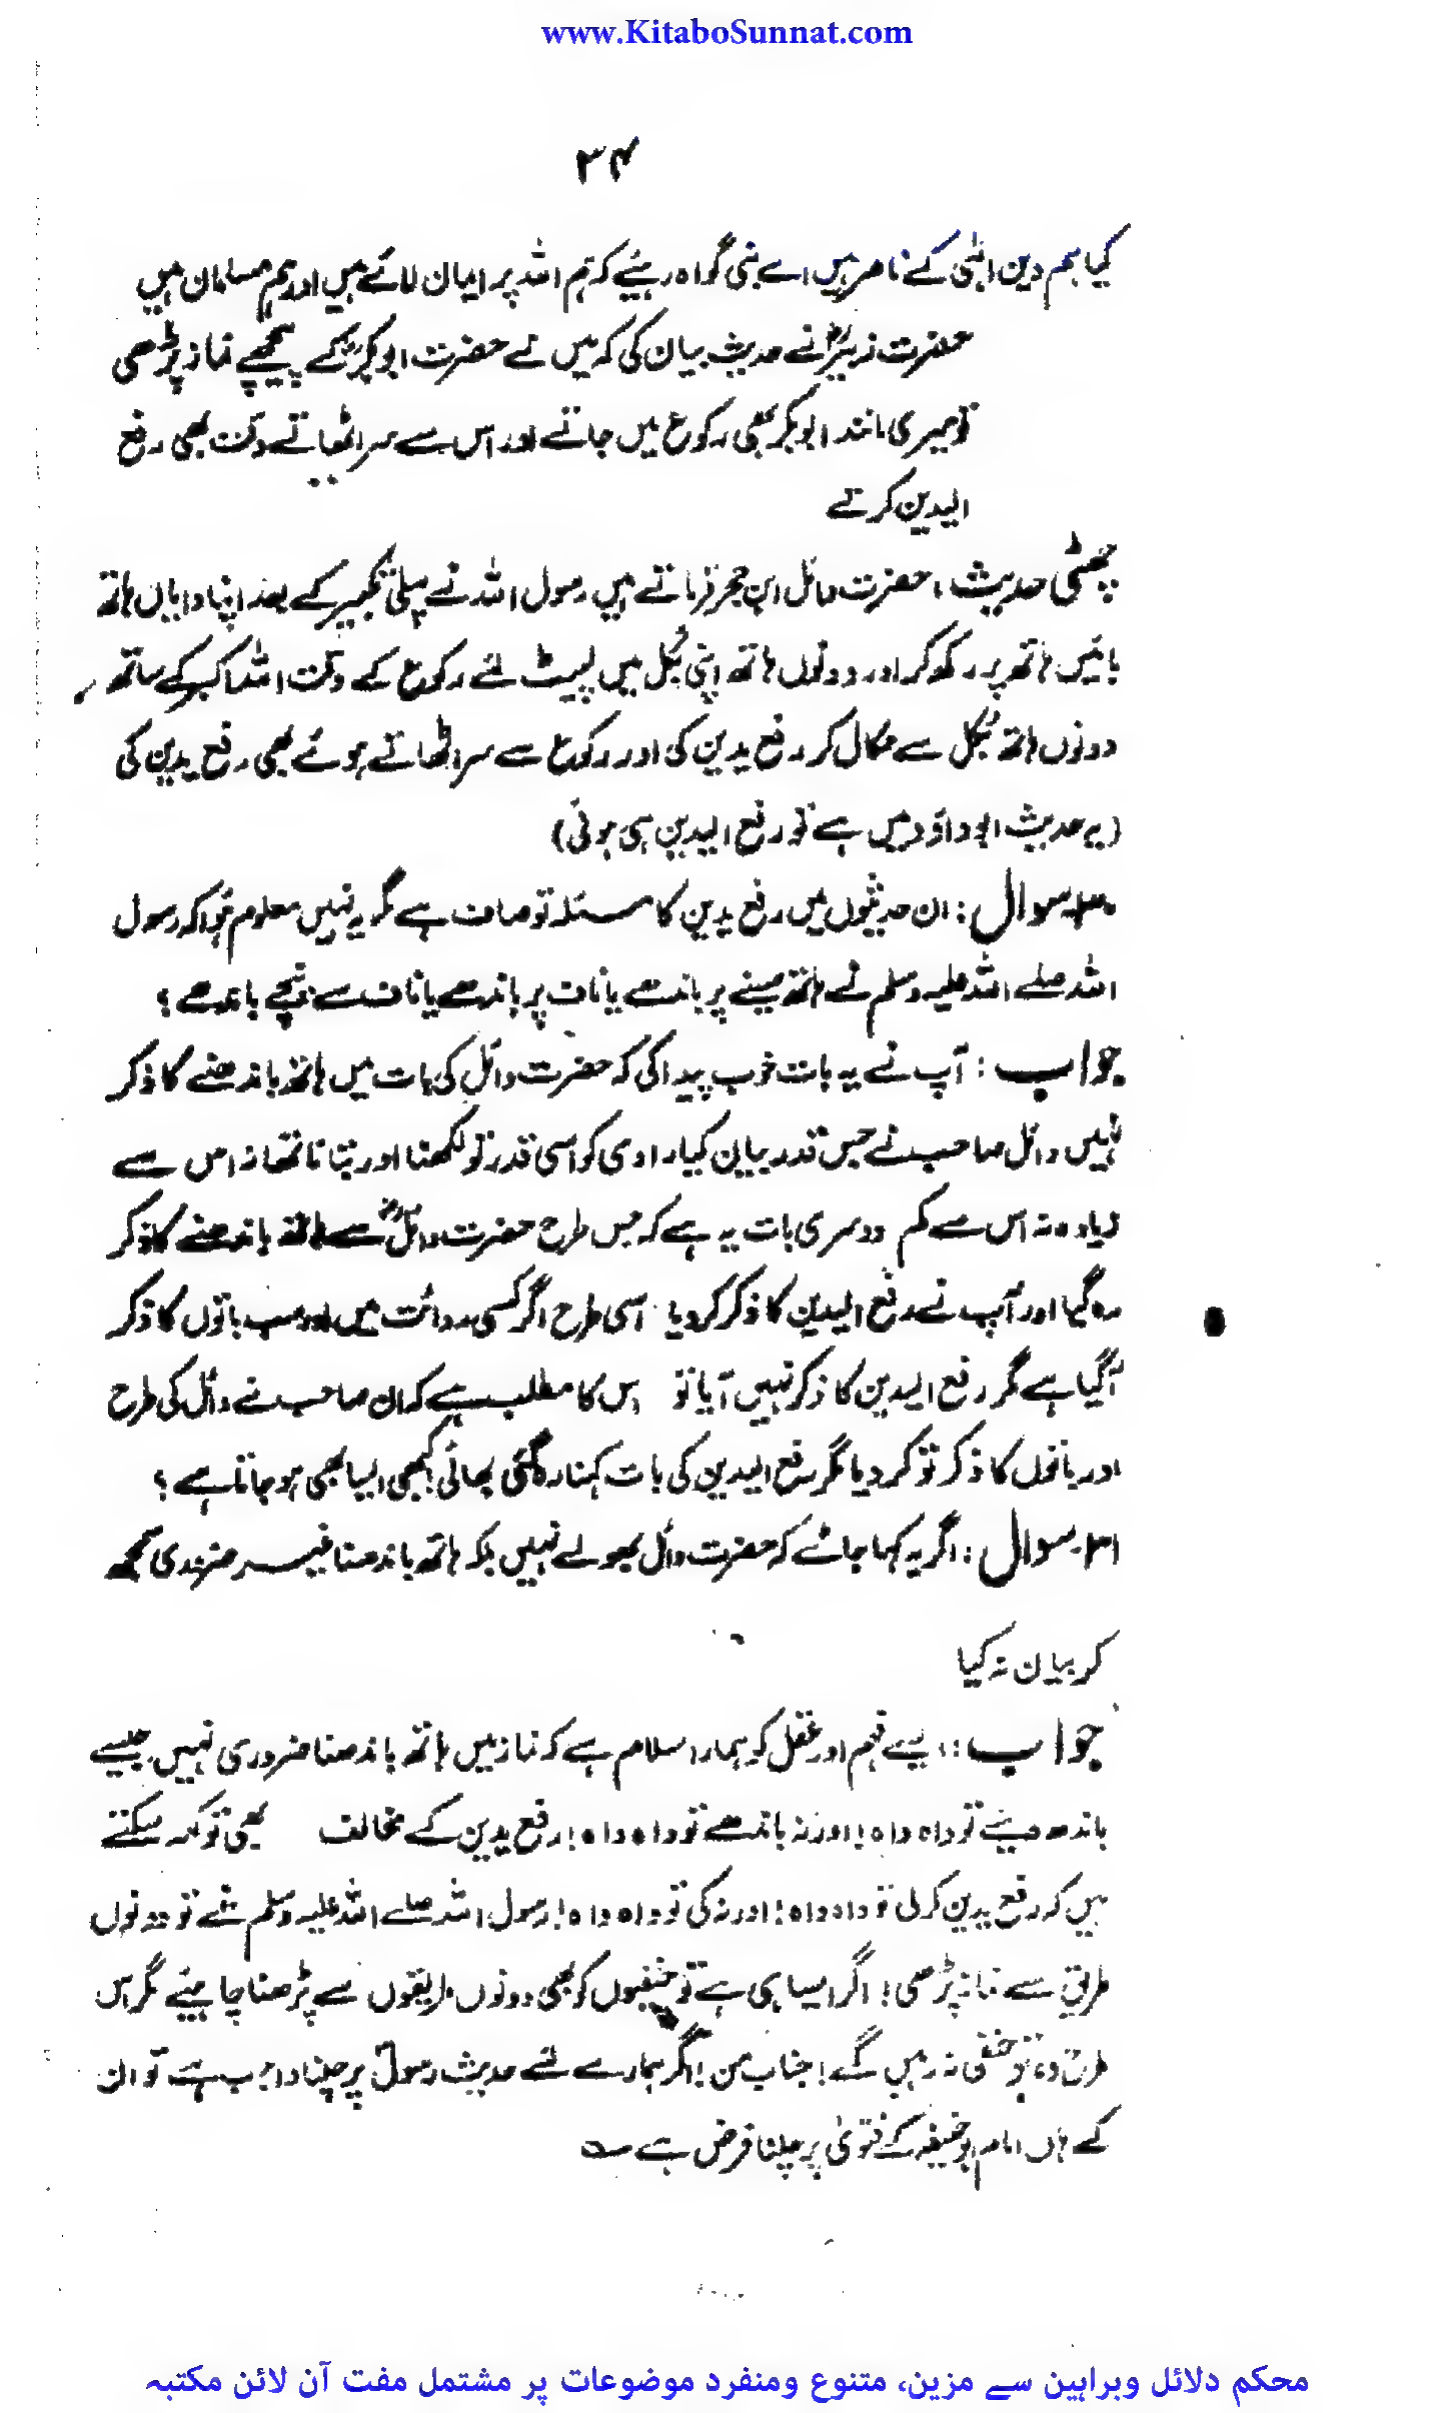 www.KitaboSunnat.com
۳۴
کیا ہم دین الٰہی کے ناصر ہیں اے نبی گواہ رہیئے کہ ہم اللہ پر ایمان لائے ہیں اور ہم مسلمان ہیں
حضرت زبیرؓ نے حدیث بیان کی کہ میں نے حضرت ابوبکرؓ کے پیچھے نماز پڑھی
تو میری مانند ابوبکرؓ بھی رکوع میں جاتے اور اس سے سر اٹھاتے وقت بھی رفع
الیدین کرتے
چھٹی حدیث: حضرت وائل ابن حجر فرماتے ہیں رسول اللہ نے پہلی تکبیر کے بعد اپنا دایاں ہاتھ
بائیں ہاتھ پر رکھ کر اور دونوں ہاتھ اپنی بُکل میں لپیٹ لئے رکوع کے وقت اللہ اکبر کے ساتھ
دونوں ہاتھ بُکل سے نکال کر رفع یدین کی اور رکوع سے سر اٹھاتے ہوئے بھی رفع یدین کی
(یہ حدیث ابو داؤد میں ہے تو رفع الیدین ہی ہوئی)
۳۰۔سوال: ان حدیثوں میں رفع یدین کا مسئلہ تو صاف ہے مگر یہ نہیں معلوم ہُوا کہ رسول
اللہ صلے اللہ علیہ وسلم نے ہاتھ سینے پر باندھے یا ناف پر باندھے یا ناف سے نیچے باندھے؟
جواب: آپ نے یہ بات خوب پیدا کی کہ حضرت وائل کی بات میں ہاتھ باندھنے کا ذکر
نہیں وائل صاحب نے جس قدر بیان کیا۔ راوی کو اسی قدر تو لکھنا اور بتانا تھا نہ اس سے
زیادہ نہ اس سے کم دوسری بات یہ ہے کہ جس طرح حضرت وائلؓ سے ہاتھ باندھنے کا ذکر
رہ گیا اور آپ نے رفع الیدین کا ذکر کر دیا اسی طرح اگر کسی روائت میں اور سب باتوں کا ذکر
آگیا ہے مگر رفع الیدین کا ذکر نہیں آیا تو اس کا مطلب ہے کہ ان صاحب نے وائل کی طرح
اور باتوں کا ذکر تو کر دیا مگر رفع الیدین کی بات کہنا رہ گئی بھائی! کبھی ایسا بھی ہو جاتا ہے؟
۳۱۔سوال: اگر یہ کہا جائے کہ حضرت وائل بھولے نہیں بلکہ ہاتھ باندھنا غیر ضروری سمجھ
کر بیان نہ کیا
جواب: ایسے فہم اور عقل کو ہمارا سلام ہے کہ نماز میں ہاتھ باندھنا ضروری نہیں، جیسے
باندھ لیئے تو واہ واہ! اور نہ باندھے تو واہ واہ! رفع یدین کے مخالف بھی تو کہہ سکتے
ہیں کہ رفع یدین کرلی تو واہ واہ! اور نہ کی تو واہ واہ! رسول اللہ صلے اللہ علیہ وسلم نے تو دونوں
طریق سے نماز پڑھی! اگر ایسا ہی ہے تو حنفیوں کو بھی دونوں طریقوں سے پڑھنا چاہیئے مگر اس
طرح وہ تو حنفی نہ رہیں گے! جناب من! اگر ہمارے لئے حدیث رسولؐ پر چلنا واجب ہے تو ان
کے ہاں امام ابو حنیفہ کے فتویٰ پر چلنا فرض ہے
محکم دلائل وبراہین سے مزین، متنوع ومنفرد موضوعات پر مشتمل مفت آن لائن مکتبہ